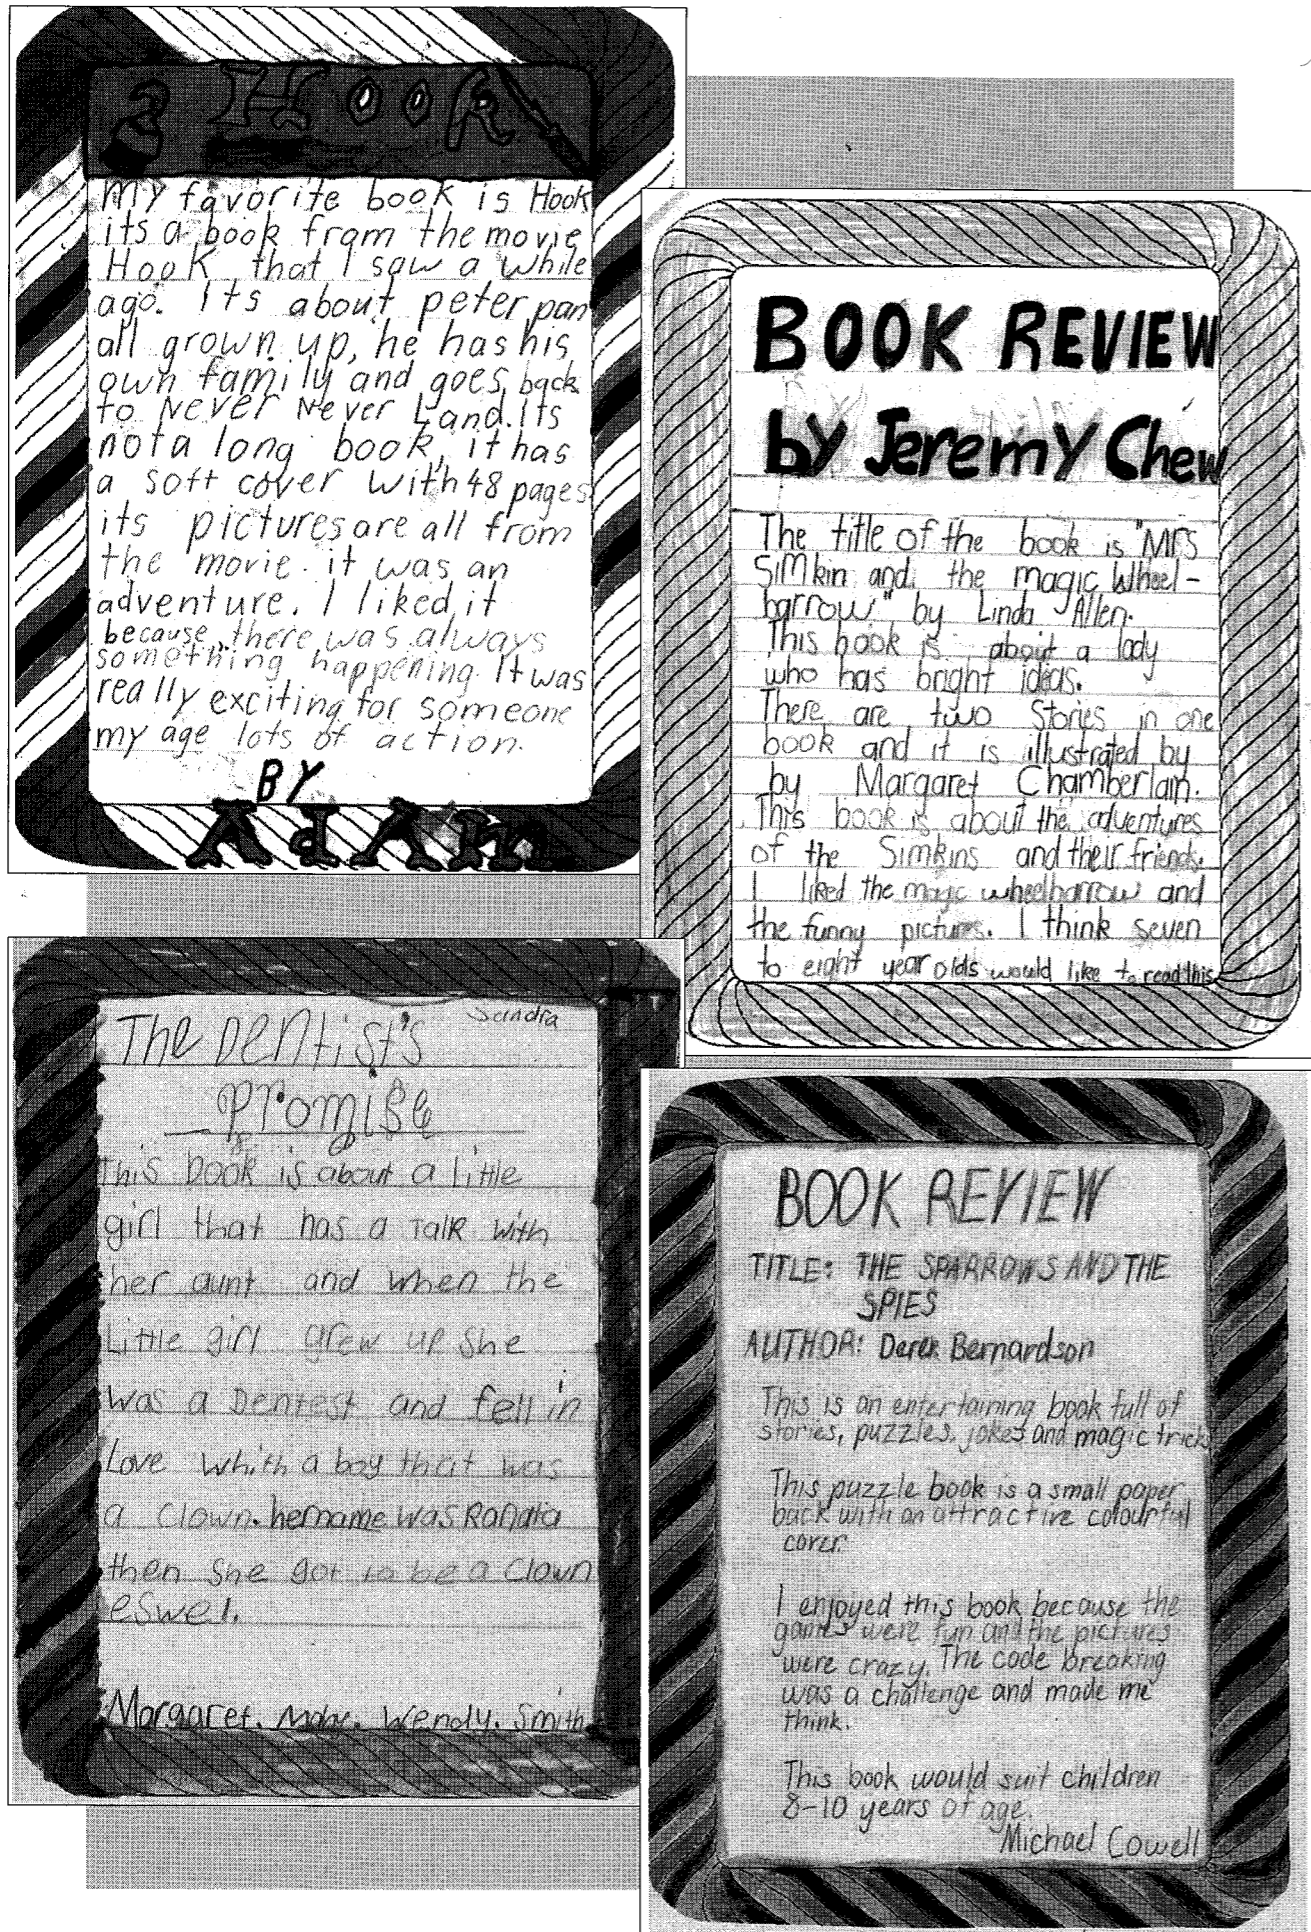 HOOK
My favorite book is Hook
its a book from the movie
Hook that I saw a while
ago. Its about peter pan
all grown up, he has his
own family and goes back
to Never Never Land. Its
not a long book, it has
a soft cover with 48 pages
its pictures are all from
the movie. it was an
adventure. I liked it
because there was always
something happening. It was
really exciting for someone
my age lots of action.
BY
AdAm
BOOK REVIEW
by Jeremy Chew
The title of the book is "Mrs
Simkin and the magic Wheel-
barrow" by Linda Allen.
This book is about a lady
who has bright ideas.
There are two Stories in one
book and it is illustrated by
by Margaret Chamberlain.
This book is about the adventures
of the Simkins and their friends.
I liked the magic wheelbarrow and
the funny pictures. I think seven
to eight year olds would like to read this
Sandra
The Dentist's
Promise
This book is about a little
girl that has a Talk with
her aunt and when the
Little girl grew up She
was a Dentest and fell in
Love whith a boy that was
a Clown. hername was Ranata
then She got to be a Clown
eswel.
Margaret. Wendy. Smith
BOOK REVIEW
TITLE: THE SPARROWS AND THE
SPIES
AUTHOR: Derek Bernardson
This is an entertaining book full of
stories, puzzles, jokes and magic tricks
This puzzle book is a small paper
back with an attractive colourful
cover.
I enjoyed this book because the
games were fun and the pictures
were crazy. The code breaking
was a challenge and made me
think.
This book would suit children
8-10 years of age.
Michael Cowell